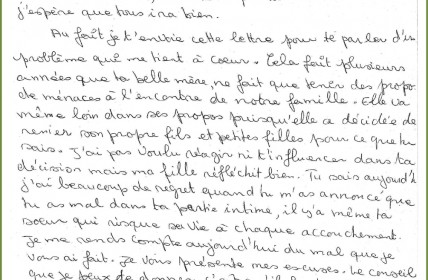 j'espère que tous ira bien.
Au fait je t'envoie cette lettre pour te parler d'un
problème qui me tient à coeur. Cela fait plusieurs
années que ta belle mère, ne fait que tenir des propos
de menaces à l'encontre de notre famille. Elle va
même loin dans ses propos puisqu'elle a décidée de
renier son propre fils et petites filles pour ce que tu
sais. J'ai pas voulu réagir ni t'influencer dans ta
décision mais ma fille réfléchit bien. Tu sais aujourd'h
j'ai beaucoup de regret quand tu m'as annoncé que
tu as mal dans ta partie intime, il y a même ta
soeur qui risque sa vie à chaque accouchement.
Je me rends compte aujourd'hui du mal que je
vous ai fait. Je vous présente mes excuses. Le conseil
que je peux